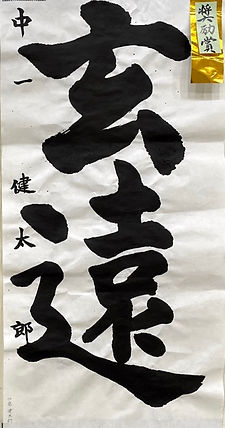 奨励賞
玄遠
中一 健太郎